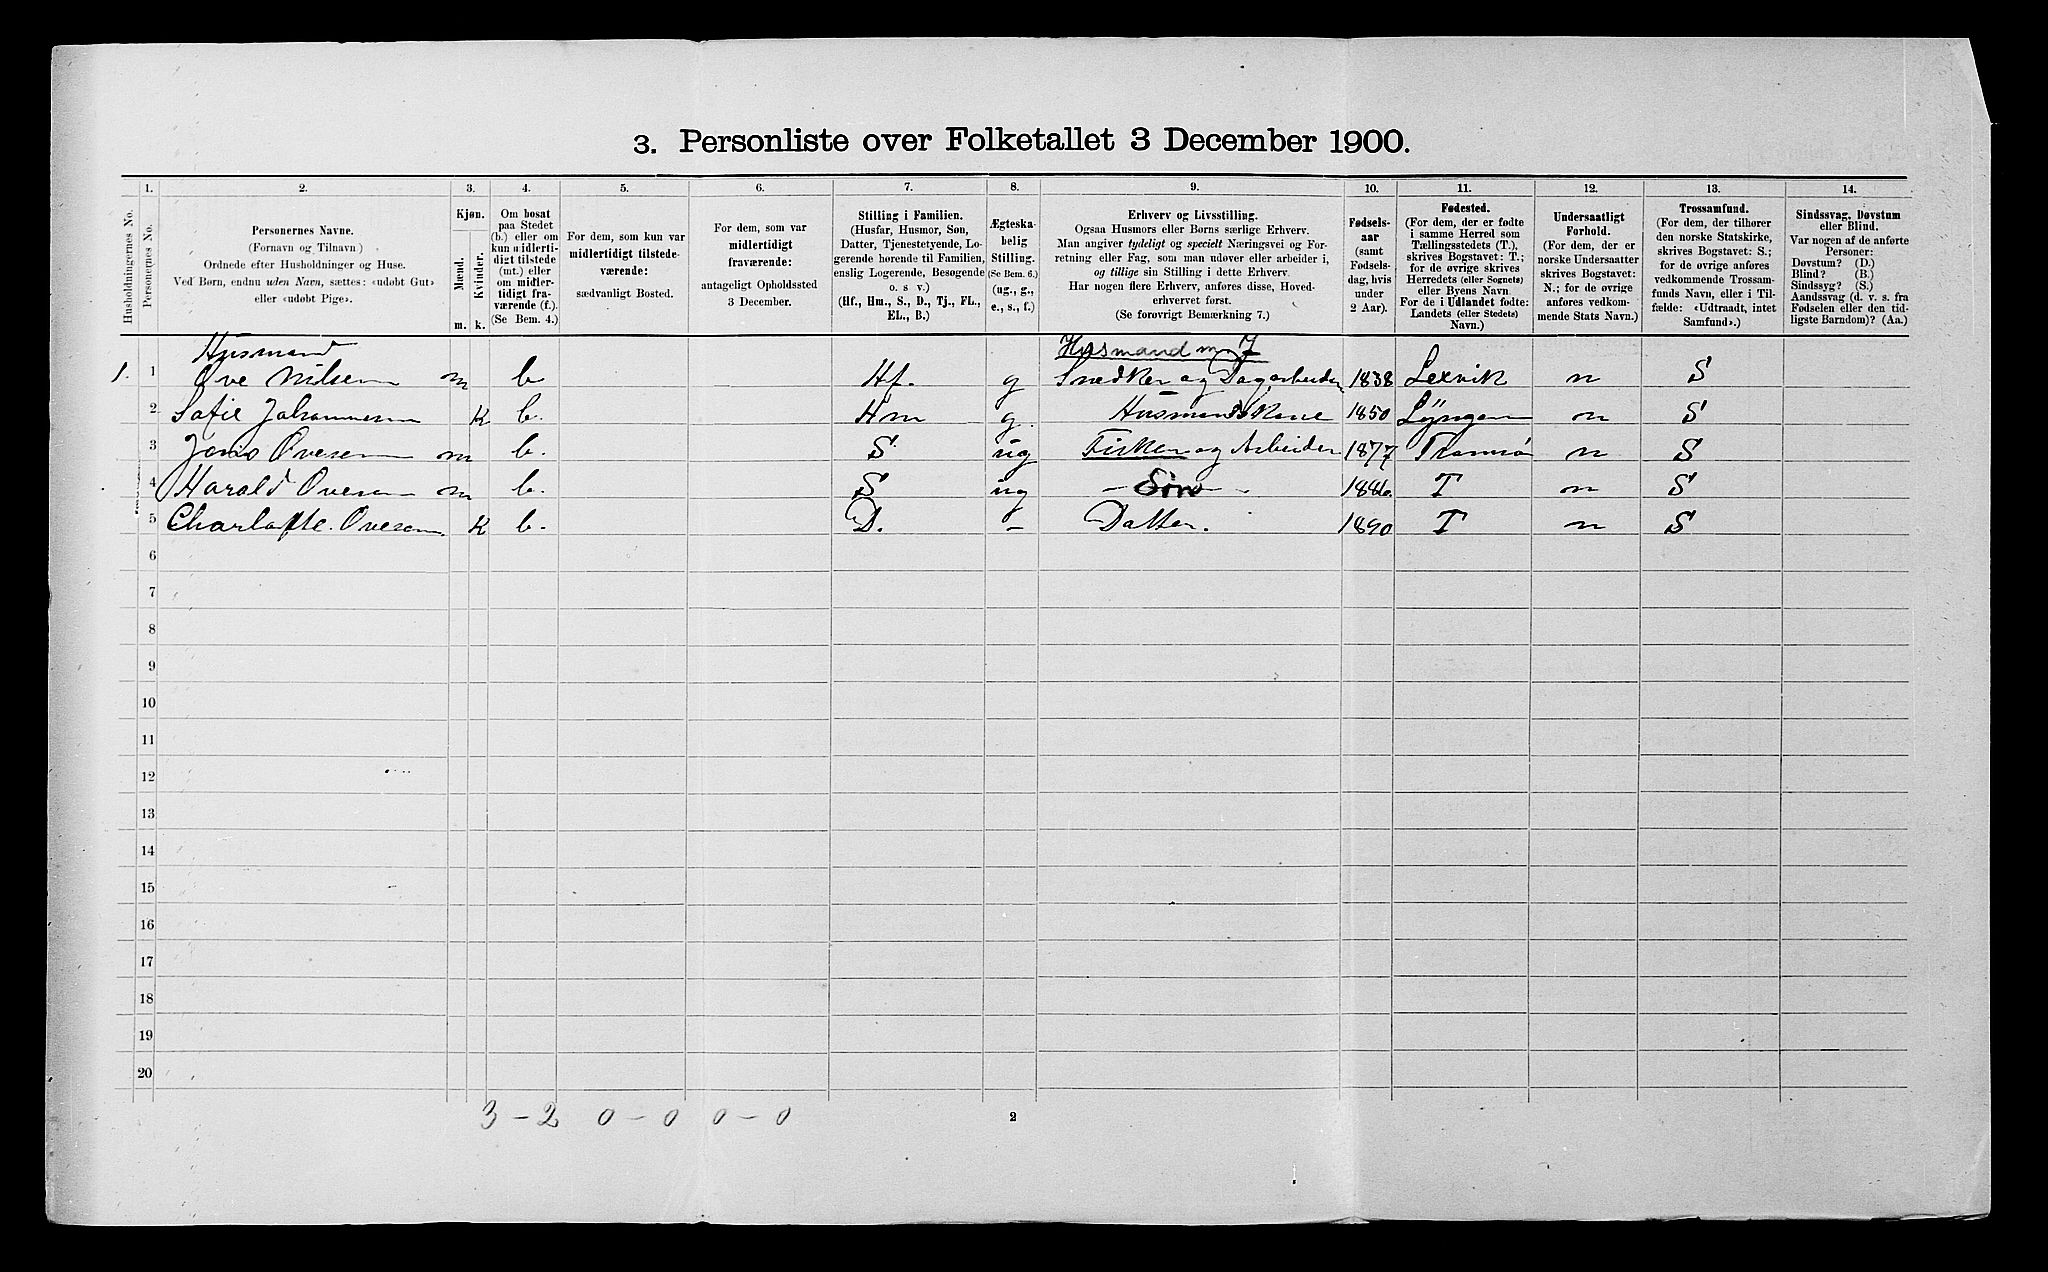 3. Personliste over Folketallet 3 December 1900.
1. 2. 3. 4. 5. 6. 7. 8. 9. 10. 11. 12. 13. 14.
Husholdningernes No.
Personernes No.
Personernes Navne.
(Fornavn og Tilnavn.)
Ordnede efter Husholdninger og Huse.
Ved Børn, endnu uden Navn, sættes: «udøbt Gut»
eller «udøbt Pige».
Kjøn.
Mænd.
Kvinder.
m. k.
Om bosat
paa Stedet
(b.) eller om
kun midlerti-
digt tilstede
(mt.) eller
om midler-
tidigt fra-
værende (f.).
(Se Bem. 4.)
For dem, som kun var
midlertidigt tilstede-
værende:
sædvanligt Bosted.
For dem, som var
midlertidigt
fraværende:
antageligt Opholdssted
3 December.
Stilling i Familien.
(Husfar, Husmor, Søn,
Datter, Tjenestetyende, Lo-
gerende hørende til Familien,
enslig Logerende, Besøgende
o. s v.)
(Hf., Hm., S., D., Tj., FL.,
EL., B.)
Ægteska-
belig
Stilling.
(Se Bem. 6.)
(ug., g.,
e., s., f.)
Erhverv og Livsstilling.
Ogsaa Husmors eller Børns særlige Erhverv.
Man angiver tydeligt og specielt Næringsvei og For-
retning eller Fag, som man udøver eller arbeider i,
og tillige sin Stilling i dette Erhverv.
Har nogen flere Erhverv, anføres disse, Hoved-
erhvervet først.
(Se forøvrigt Bemærkning 7.)
Fødsels-
aar
(samt
Fødsels-
dag, hvis
under
2 Aar).
Fødested.
(For dem, der er fødte
i samme Herred som
Tællingsstedets (T.),
skrives Bogstavet: T.;
for de øvrige skrives
Herredets (eller Sognets)
eller Byens Navn
For de i Udlandet fødte:
Landets (eller Stedets)
Navn.)
Undersaatligt
Forhold.
(For dem, der er
norske Undersaatter
skrives Bogstavet:
N.; for de øvrige
anføres vedkom-
mende Stats Navn.)
Trossamfund.
(For dem, der tilhører
den norske Statskirke,
skrives Bogstavet: S.;
for de øvrige anføres
vedkommende Trossam-
funds Navn, eller i Til-
fælde: «Udtraadt, intet
Samfund».)
Sindssvag, Døvstum
eller Blind.
Var nogen af de anførte
Personer:
Døvstum? (D.)
Blind? (B.)
Sindssyg? (S.)
Aandssvag (d. v. s. fra
Fødselen eller den tid-
ligste Barndom)? (Aa.)
Husmand Husmand m J
1. 1 Ove Nilsen m b Hf. g Snedker og Dagarbeider 1838 Lexvik n S
2 Sofie Johannesen K b. Hm g. Husmandskone 1850 Lyngen n S
3 Ovesen m b. S ug Fisker og Arbeider 1877 Tromsø n S
4 Harald Ovesen m b. S ug 1886. T n S
5 Charlotte. Ovesen. K b. D. - Datter. 1890 T n S
6
7
8
9
10
11
12
13
14
15
16
17
18
19
20
3 - 2 0 - 0 0 - 0 2